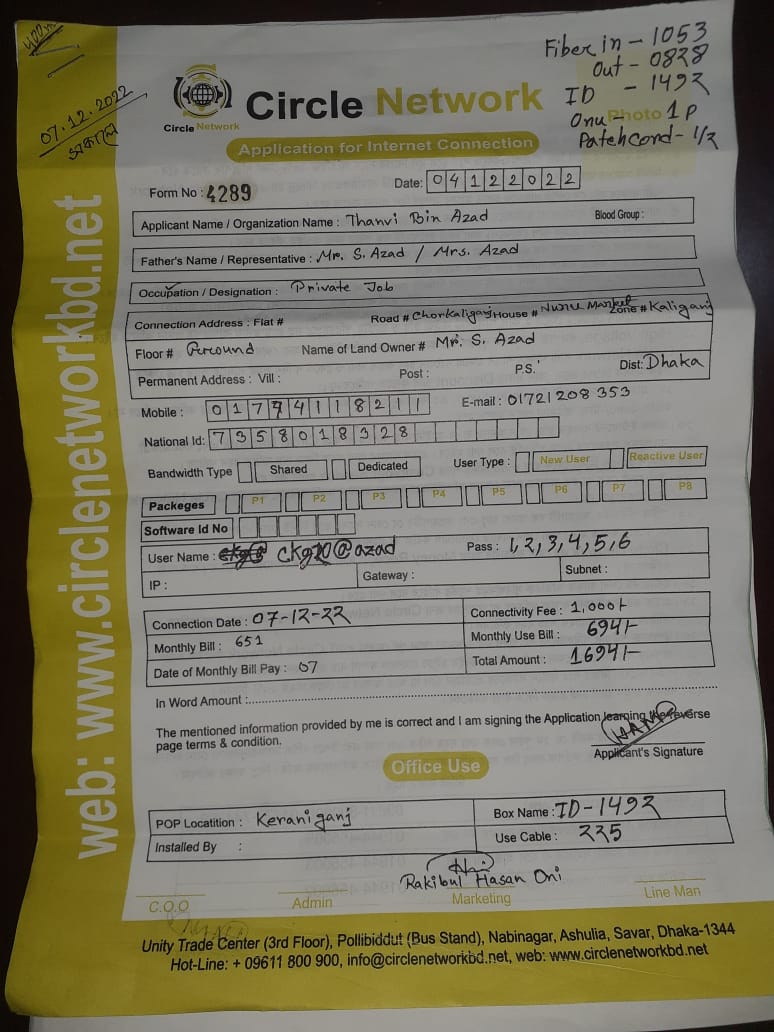 Fiber in - 1053
Out - 0828
07.12.2022
ID - 1492
Onu - 1P
Photo
Patch cord - 1/2
Circle Network
Circle Network
Application for Internet Connection
Form No : 4289
Date: 04122022
Applicant Name / Organization Name : Thanvi Bin Azad Blood Group :
Father's Name / Representative : Mr. S. Azad / Mrs. Azad
Occupation / Designation : Private Job
Connection Address : Flat # Road # Chorkaliganj House # Nuru Market Zone # Kaliganj
Floor # Ground Name of Land Owner # Mr. S. Azad
Permanent Address : Vill : Post : P.S. Dist: Dhaka
Mobile : 01774118211 E-mail : 01721208353
National Id: 7358018328
Bandwidth Type Shared Dedicated User Type : New User Reactive User
Packeges P1 P2 P3 P4 P5 P6 P7 P8
Software Id No
User Name : ckg20@azad Pass : 1,2,3,4,5,6
IP : Gateway : Subnet :
Connection Date : 07-12-22 Connectivity Fee : 1,000/-
Monthly Bill : 651 Monthly Use Bill : 694/-
Date of Monthly Bill Pay : 07 Total Amount : 1694/-
In Word Amount :
The mentioned information provided by me is correct and I am signing the Application learning the reverse
page terms & condition.
Applicant's Signature
Office Use
POP Locatition : Keraniganj Box Name : ID-1492
Installed By : Use Cable : 225
Rakibul Hasan Oni
C.O.O Admin Marketing Line Man
Unity Trade Center (3rd Floor), Pollibiddut (Bus Stand), Nabinagar, Ashulia, Savar, Dhaka-1344
Hot-Line: + 09611 800 900, info@circlenetworkbd.net, web: www.circlenetworkbd.net
web: www.circlenetworkbd.net